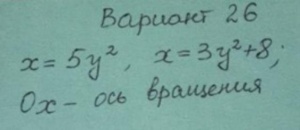 Вариант 26
x = 5y², x = 3y² + 8;
Ox – ось вращения